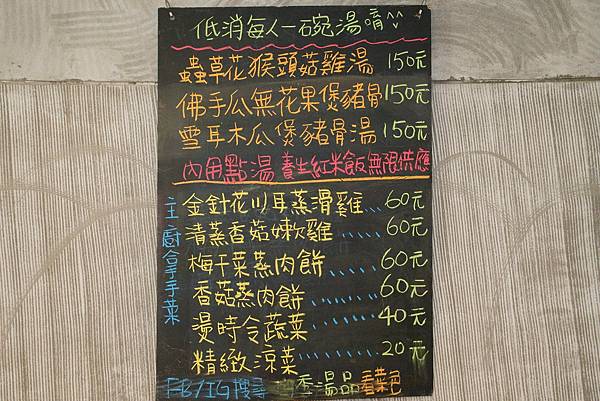 低消每人一碗湯唷
蟲草花猴頭菇雞湯 150元
佛手瓜無花果煲豬骨 150元
雪耳木瓜煲豬骨湯 150元
內用點湯 養生紅米飯無限供應
主廚拿手菜
金針花川耳蒸滑雞... 60元
清蒸香菇嫩雞.... 60元
梅干菜蒸肉餅...... 60元
香菇蒸肉餅...... 60元
燙時令蔬菜..... 40元
精緻涼菜..... 20元
FB/IG搜尋 香湯品看菜色